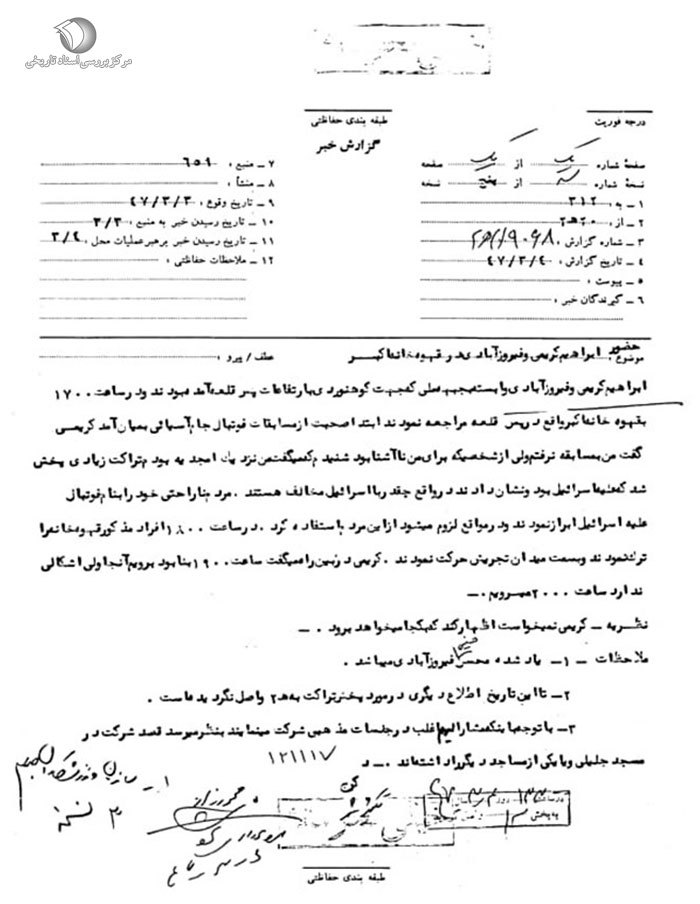 مرکز بررسی اسناد تاریخی
طبقه بندی حفاظتی
درجه فوریت
گزارش خبر
صفحهٔ شماره یک از یک صفحه
نسخهٔ شماره سه از پنج نسخه
۱ ـ به : ۳۱۲
۲ ـ از : ۲۰ ه ۲
۳ ـ شماره گزارش :
۴ ـ تاریخ گزارش : ۴۷/۳/۴
۵ ـ پیوست :
۶ ـ گیرندگان خبر :
۷ ـ منبع : ۶۵۹
۸ ـ منشأ :
۹ ـ تاریخ وقوع : ۴۷/۳/۳
۱۰ ـ تاریخ رسیدن خبر به منبع : ۳/۳
۱۱ ـ تاریخ رسیدن خبر برهبر عملیات محل : ۳/۴
۱۲ ـ ملاحظات حفاظتی :
موضوع : حضور ابراهیم کریمی و فیروزآبادی در قهوه خانه اکبر
عطف / پیرو :
ابراهیم کریمی و فیروزآبادی وابسته بجبهه ملی که جهت کوهنوردی بارتفاعات پس قلعه آمده بودند در ساعت ۱۷۰۰
بقهوه خانه اکبر واقع در پس قلعه مراجعه نمودند ابتدا صحبت از مسابقات فوتبال جام آسیائی بمیان آمد کریمی
گفت من بمسابقه نرفتم ولی از شخصیکه برای من ناآشنا بود شنیدم که میگفت من نزدیک امجدیه بودم تراکت زیادی پخش
شد که علیه اسرائیل بود و نشان دادند در واقع چقدر با اسرائیل مخالف هستند . مردم ناراحتی خود را بنام فوتبال
علیه اسرائیل ابراز نمودند و در مواقع لزوم میشود از این مردم استفاده کرد . در ساعت ۱۸۰۰ افراد مذکور قهوه خانه را
ترک نمودند و بسمت میدان تجریش حرکت نمودند . کریمی در بین راه میگفت ساعت ۱۹۰۰ بنا بود برویم آنجا ولی اشکالی
ندارد ساعت ۲۰۰۰ میرویم . ـ
نظریه ـ کریمی نمیخواست اظهار کند که بکجا میخواهد برود . ـ
ملاحظات ـ ۱ـ یاد شده محسن فیروزآبادی میباشد .
۲ـ تا این تاریخ اطلاع دیگری در مورد پخش تراکت به ه ۲ واصل نگردیده است .
۳ـ با توجه باینکه مشارالیهم اغلب در جلسات مذهبی شرکت مینمایند بنظر میرسد قصد شرکت در
مسجد جلیلی و یا یکی از مساجد دیگر را داشته اند . ـ د
۱۲۱۱۱۷
۳ نسخه
طبقه بندی حفاظتی